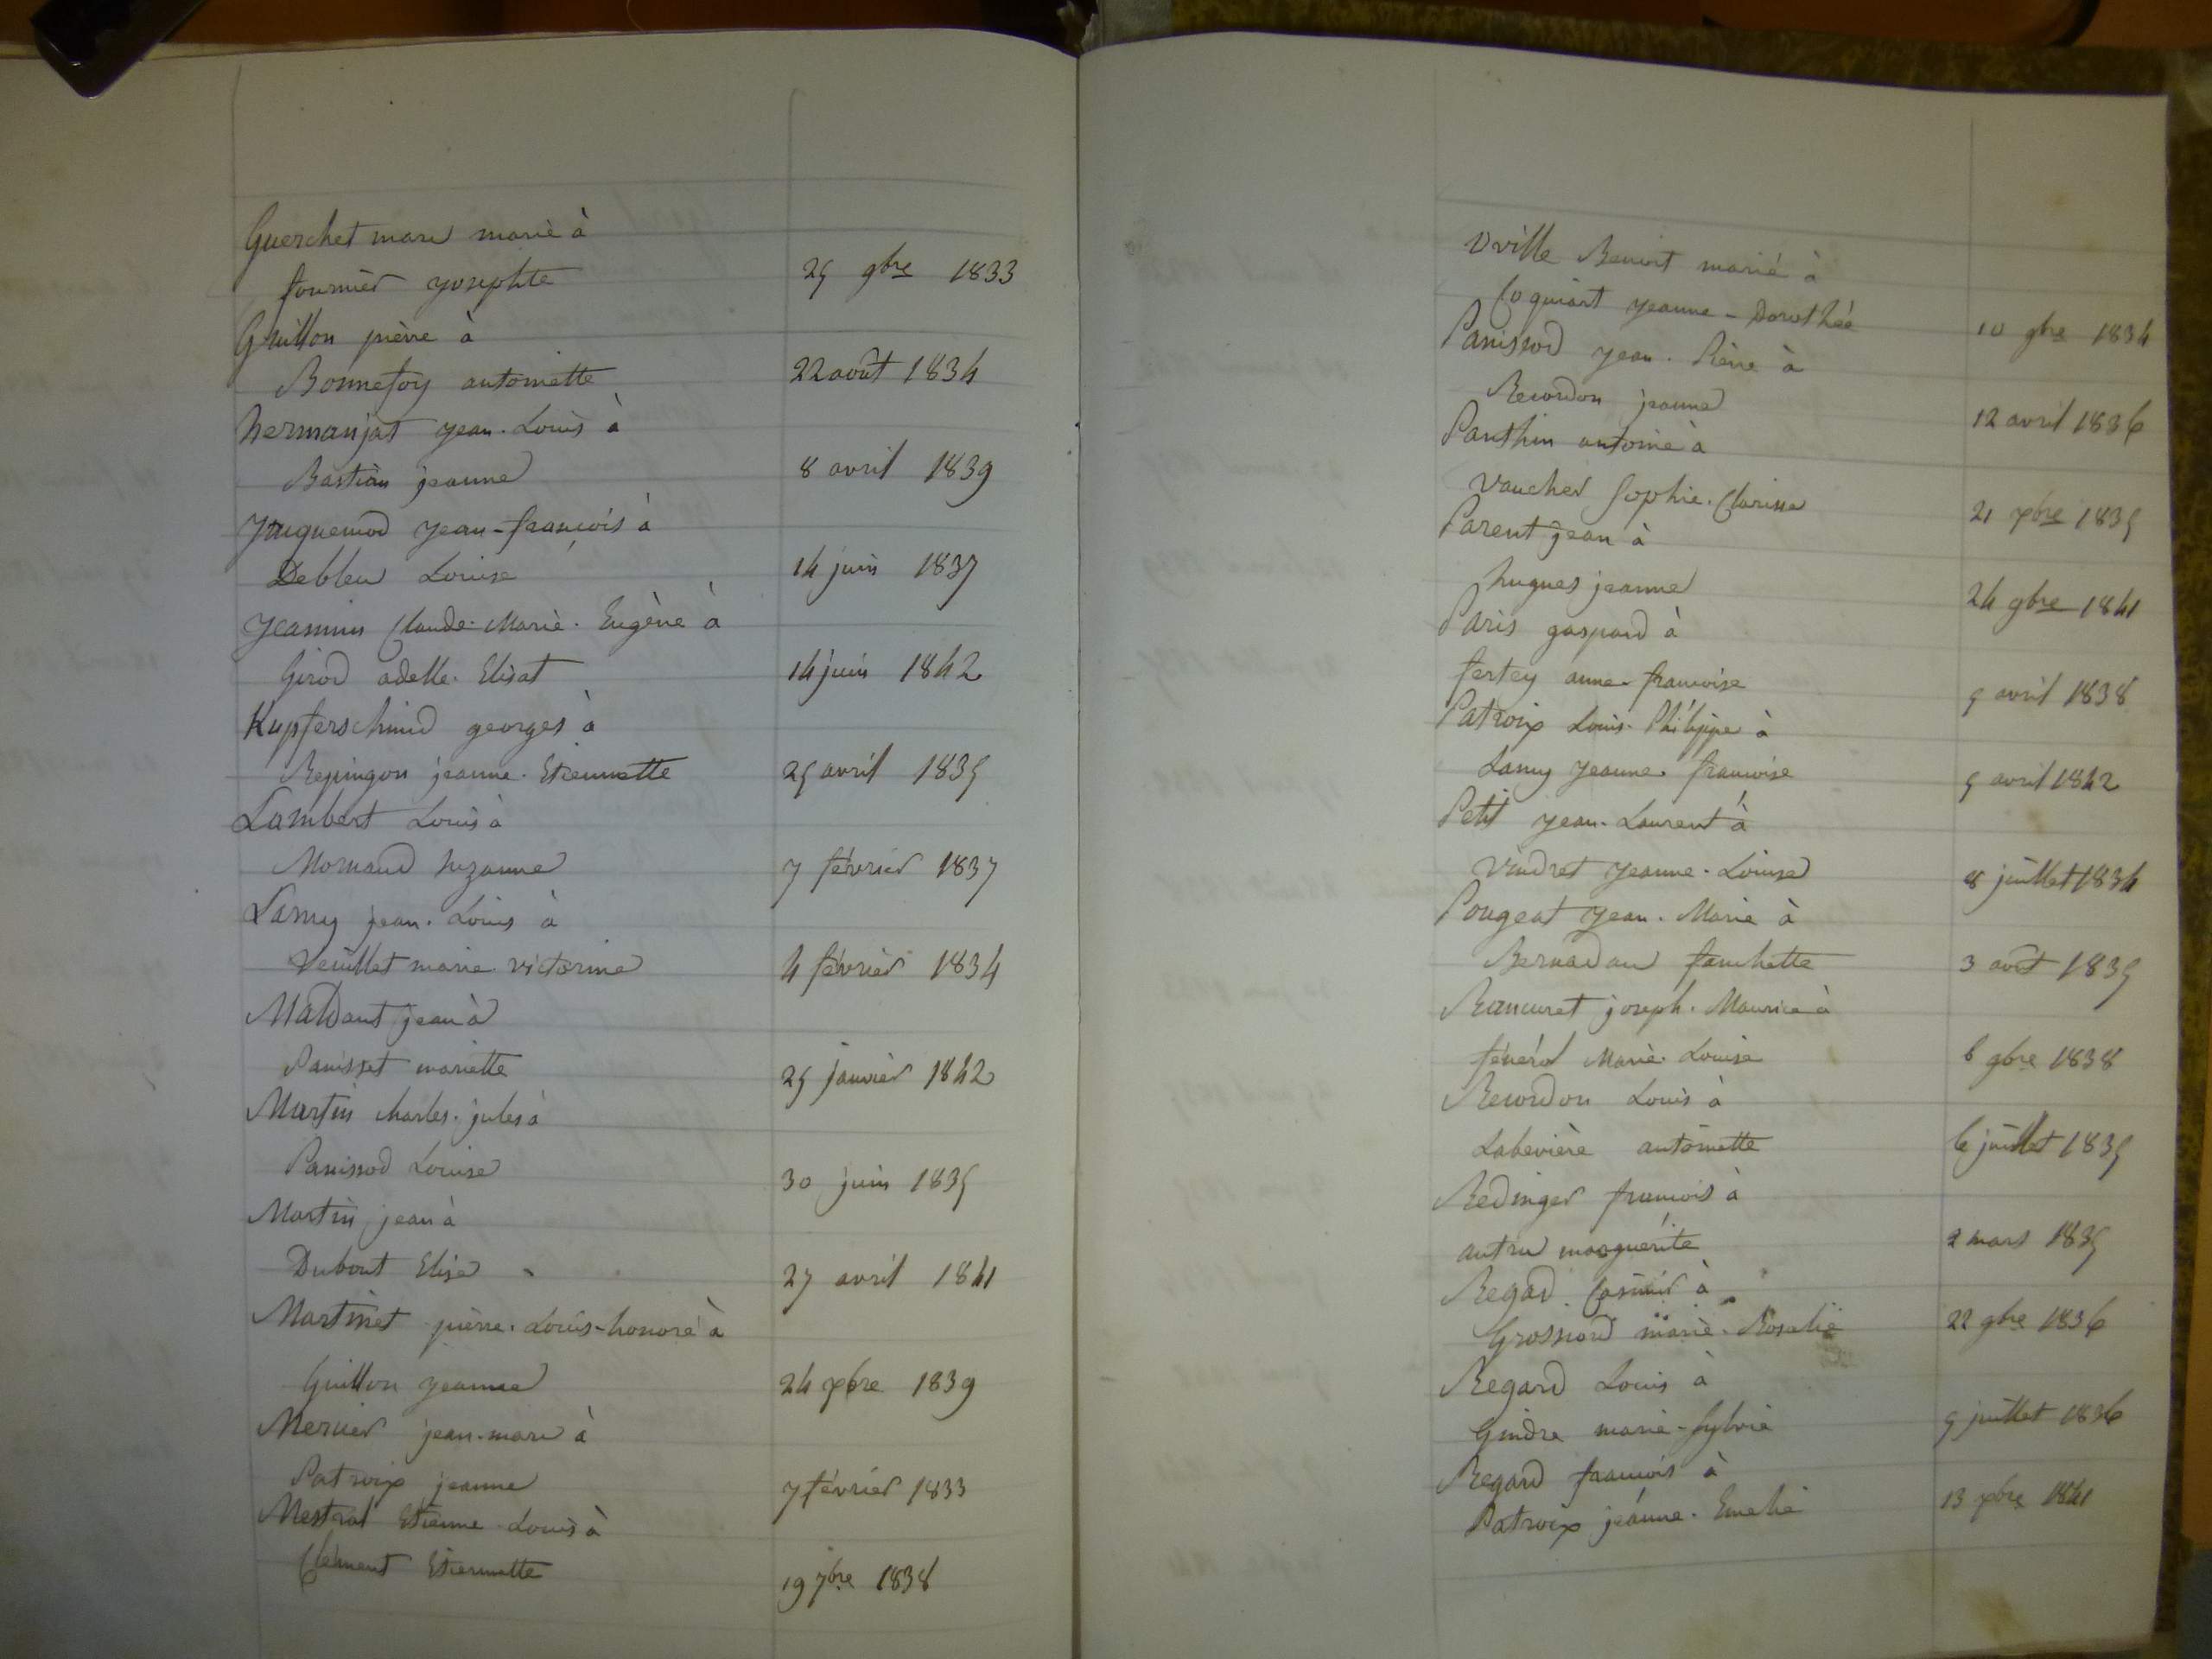 Guerchet marc marié à
fournier josephte 25 9bre 1833
Guillon pièrre à
Bonnefoy antoinette 22 août 1834
hermanjat jean. Louis à
Bastian jeanne 8 avril 1839
Juquemod jean-francois à
Debleu Louise 14 juin 1837
Jeannin Claude. Marie. Eugène à
Girod adelle. Elisat 14 juin 1842
Kupferschmid georges à
Repingon jeanne. Etiennette 25 avril 1835
Lambert Louis à
Mornand suzanne 7 février 1837
Lamy jean. Louis à
Veuillet marie. victorine 4 février 1834
Maldant jean à
Panisset mariette 25 janvier 1842
Martin charles. jules à
Panissod Louise 30 juin 1835
Martin jean à
Dubout Elise 27 avril 1841
Martinet pièrre. Louis-honoré à
Guillon jeanne 24 xbre 1839
Mercier jean-marc à
Patroix jeanne 7 février 1833
Mestral Etienne Louis à
Clément Etiennette 19 7bre 1838
Vville Benoit marié à
Coquiart jeanne-Dorothée 10 9bre 1834
Panissod jean. Pière à
Recordon jeanne 12 avril 1836
Panthin antoine à
Vaucher Sophie. Clarisse 21 xbre 1835
Parent jean à
hugues jeanne 24 9bre 1841
Paris gaspard à
fertey anne-francoise 5 avril 1838
Patroix Louis. Philippe à
Lamy jeanne. francoise 5 avril 1842
Petit jean. Laurent à
Vindret jeanne. Louise 8 juillet 1834
Pougeat jean. Marie à
Bernadau fanchette 3 août 1835
Rancuret joseph. Maurice à
fénérol Marie. Louise 6 9bre 1838
Recordon Louis à
Labevière antoinette 6 juillet 1835
Redinger francois à
autru marguérite 2 mars 1835
Regard. Casimir à
Grossiord marie. Rosalie 22 9bre 1836
Regard Louis à
Gindre marie-sylvie 5 juillet 1836
Regard francois à
Patroix jeánne. Emelie 13 xbre 1841